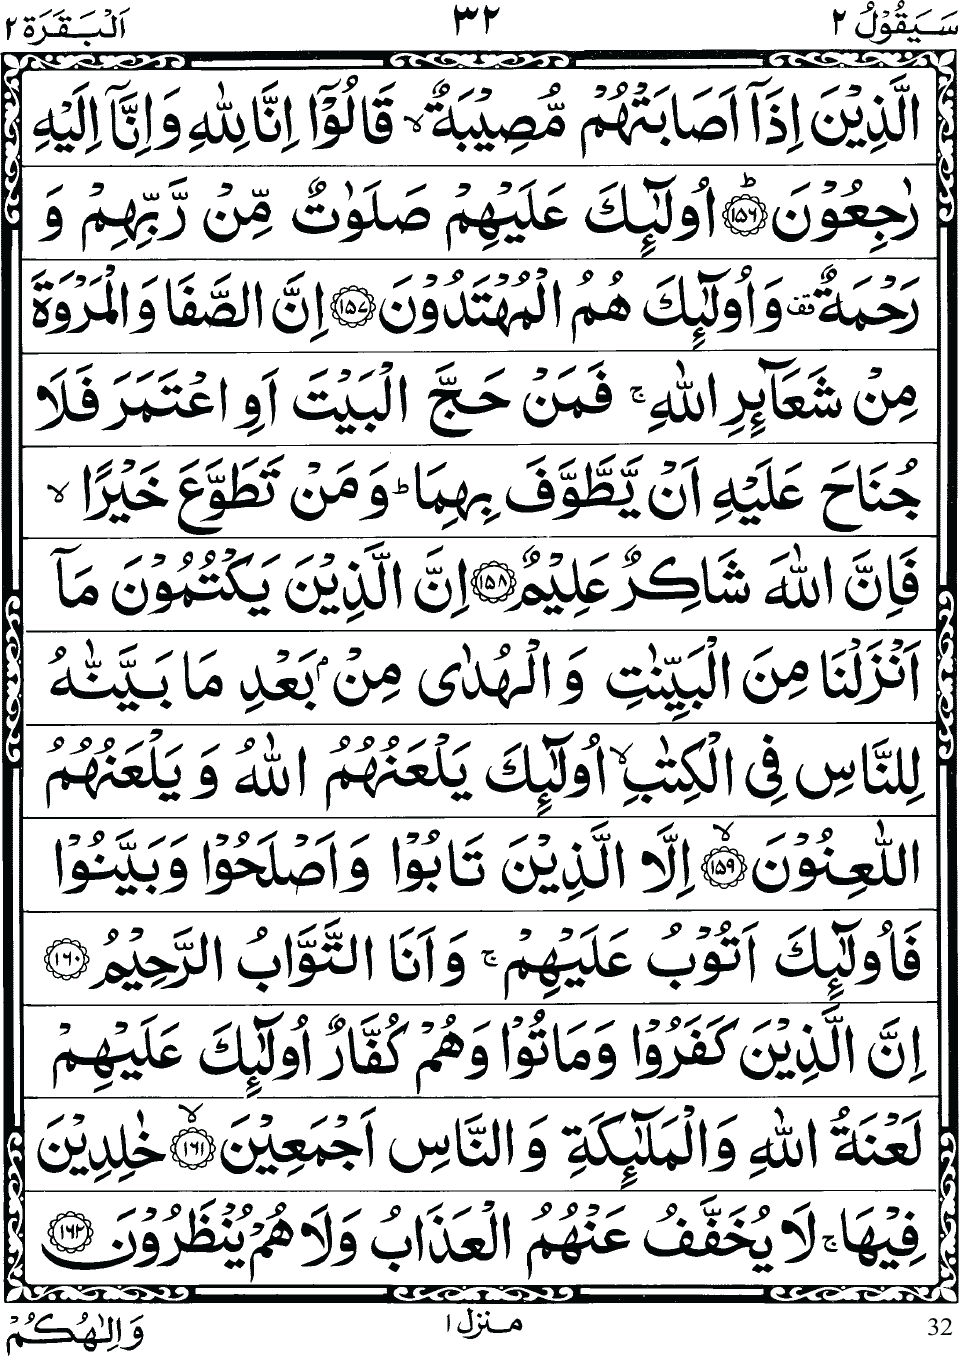 سَيَقُوْلُ ٢ ٣٢ اَلْبَقَرَة ٢
الَّذِيْنَ اِذَاۤ اَصَابَتْهُمْ مُّصِيْبَةٌ ۙ قَالُوْۤا اِنَّا لِلّٰهِ وَاِنَّاۤ اِلَيْهِ
رٰجِعُوْنَ ؕ﴿۱۵۶﴾ اُولٰٓئِكَ عَلَيْهِمْ صَلَوٰتٌ مِّنْ رَّبِّهِمْ وَ
رَحْمَةٌ ۟ وَاُولٰٓئِكَ هُمُ الْمُهْتَدُوْنَ ﴿۱۵۷﴾ اِنَّ الصَّفَا وَالْمَرْوَةَ
مِنْ شَعَآئِرِ اللّٰهِ ۚ فَمَنْ حَجَّ الْبَيْتَ اَوِ اعْتَمَرَ فَلَا
جُنَاحَ عَلَيْهِ اَنْ يَّطَّوَّفَ بِهِمَا ؕ وَمَنْ تَطَوَّعَ خَيْرًا ۙ
فَاِنَّ اللّٰهَ شَاكِرٌ عَلِيْمٌ ﴿۱۵۸﴾ اِنَّ الَّذِيْنَ يَكْتُمُوْنَ مَاۤ
اَنْزَلْنَا مِنَ الْبَيِّنٰتِ وَالْهُدٰى مِنْۢ بَعْدِ مَا بَيَّنّٰهُ
لِلنَّاسِ فِى الْكِتٰبِ ۙ اُولٰٓئِكَ يَلْعَنُهُمُ اللّٰهُ وَ يَلْعَنُهُمُ
اللّٰعِنُوْنَ ۙ﴿۱۵۹﴾ اِلَّا الَّذِيْنَ تَابُوْا وَاَصْلَحُوْا وَبَيَّنُوْا
فَاُولٰٓئِكَ اَتُوْبُ عَلَيْهِمْ ۚ وَاَنَا التَّوَّابُ الرَّحِيْمُ ﴿۱۶۰﴾
اِنَّ الَّذِيْنَ كَفَرُوْا وَمَاتُوْا وَهُمْ كُفَّارٌ اُولٰٓئِكَ عَلَيْهِمْ
لَعْنَةُ اللّٰهِ وَالْمَلٰٓئِكَةِ وَالنَّاسِ اَجْمَعِيْنَ ۙ﴿۱۶۱﴾ خٰلِدِيْنَ
فِيْهَا ۚ لَا يُخَفَّفُ عَنْهُمُ الْعَذَابُ وَلَا هُمْ يُنْظَرُوْنَ ﴿۱۶۲﴾
32 منزل ١ وَاِلٰهُكُمْ